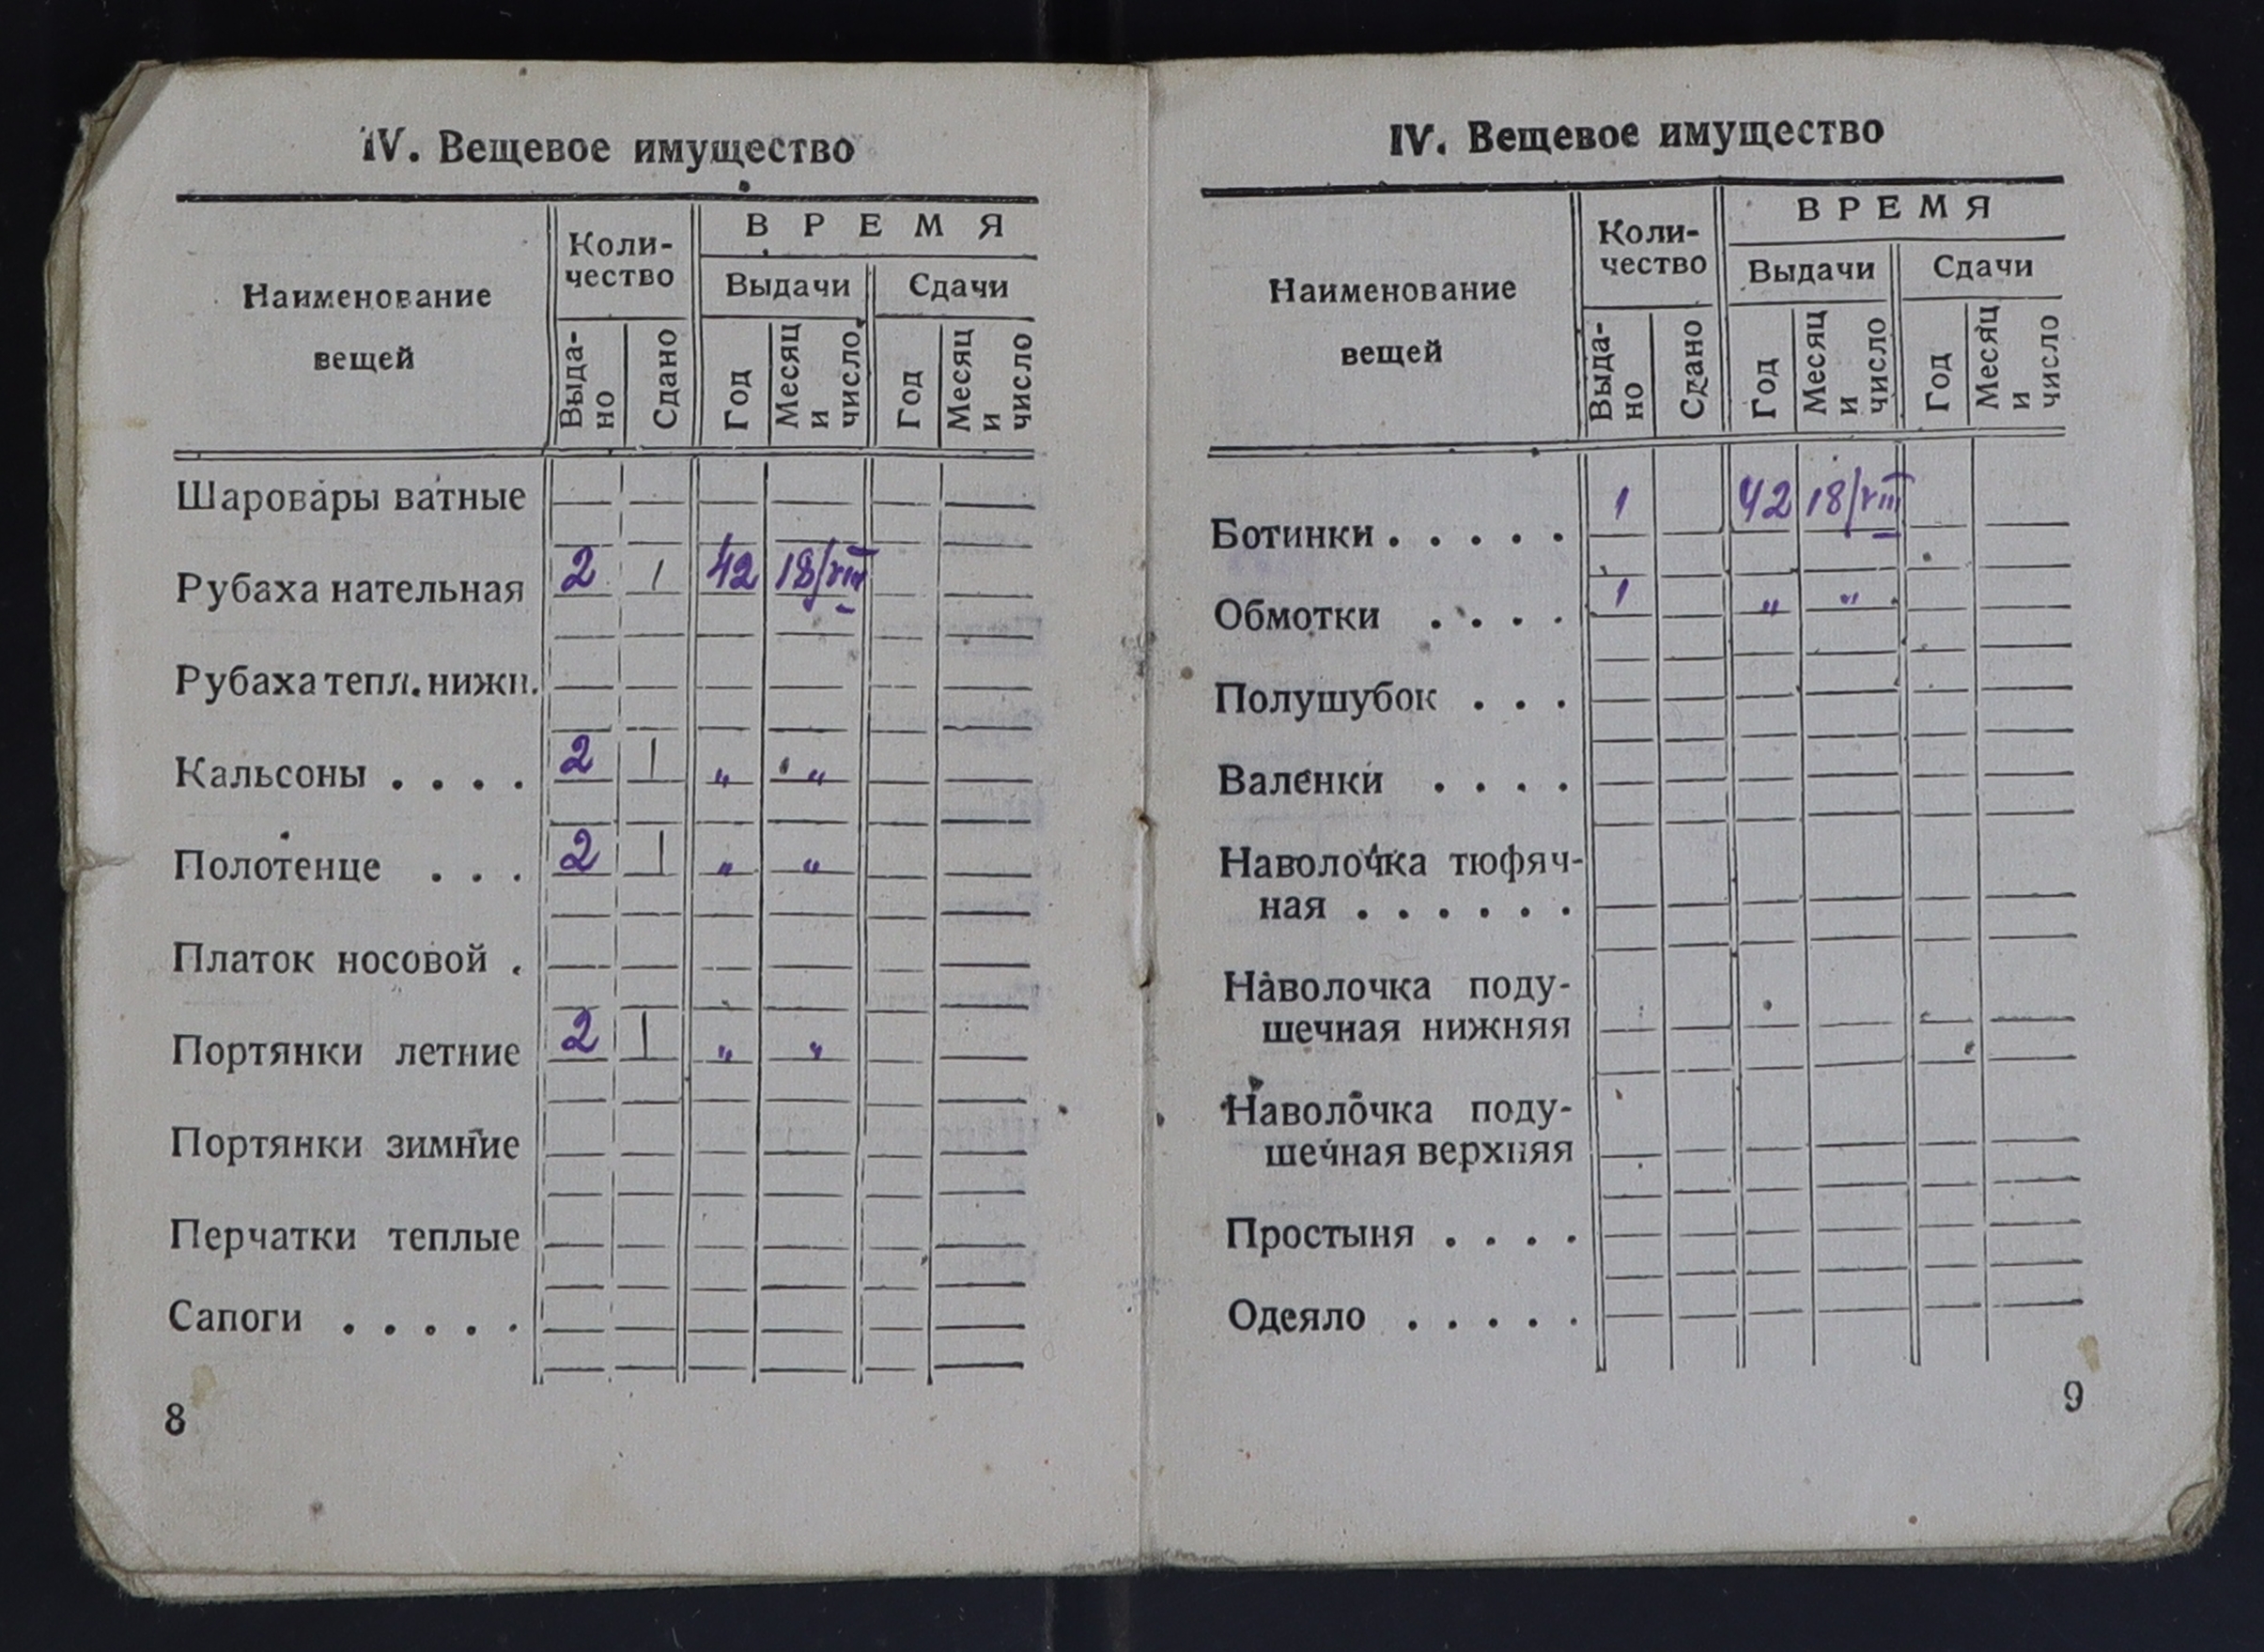 IV. Вещевое имущество
Наименование вещей
Коли-
чество
ВРЕМЯ
Выдачи
Сдачи
Выда-
но
Сдано
Год
Месяц
и
число
Год
Месяц
и
число
Шаровары ватные
Рубаха нательная 2 1 42 18/VIII
Рубаха тепл. нижн.
Кальсоны . . . . 2 1 " "
Полотенце . . . 2 1 " "
Платок носовой .
Портянки летние 2 1 " "
Портянки зимние
Перчатки теплые
Сапоги . . . . .
8
IV. Вещевое имущество
Наименование вещей
Коли-
чество
ВРЕМЯ
Выдачи
Сдачи
Выда-
но
Сдано
Год
Месяц
и
число
Год
Месяц
и
число
Ботинки . . . . . 1 42 18/VIII
Обмотки . . . . 1 " "
Полушубок . . .
Валенки . . . .
Наволочка тюфяч-
ная . . . . . .
Наволочка поду-
шечная нижняя
Наволочка поду-
шечная верхняя
Простыня . . . .
Одеяло . . . . .
9